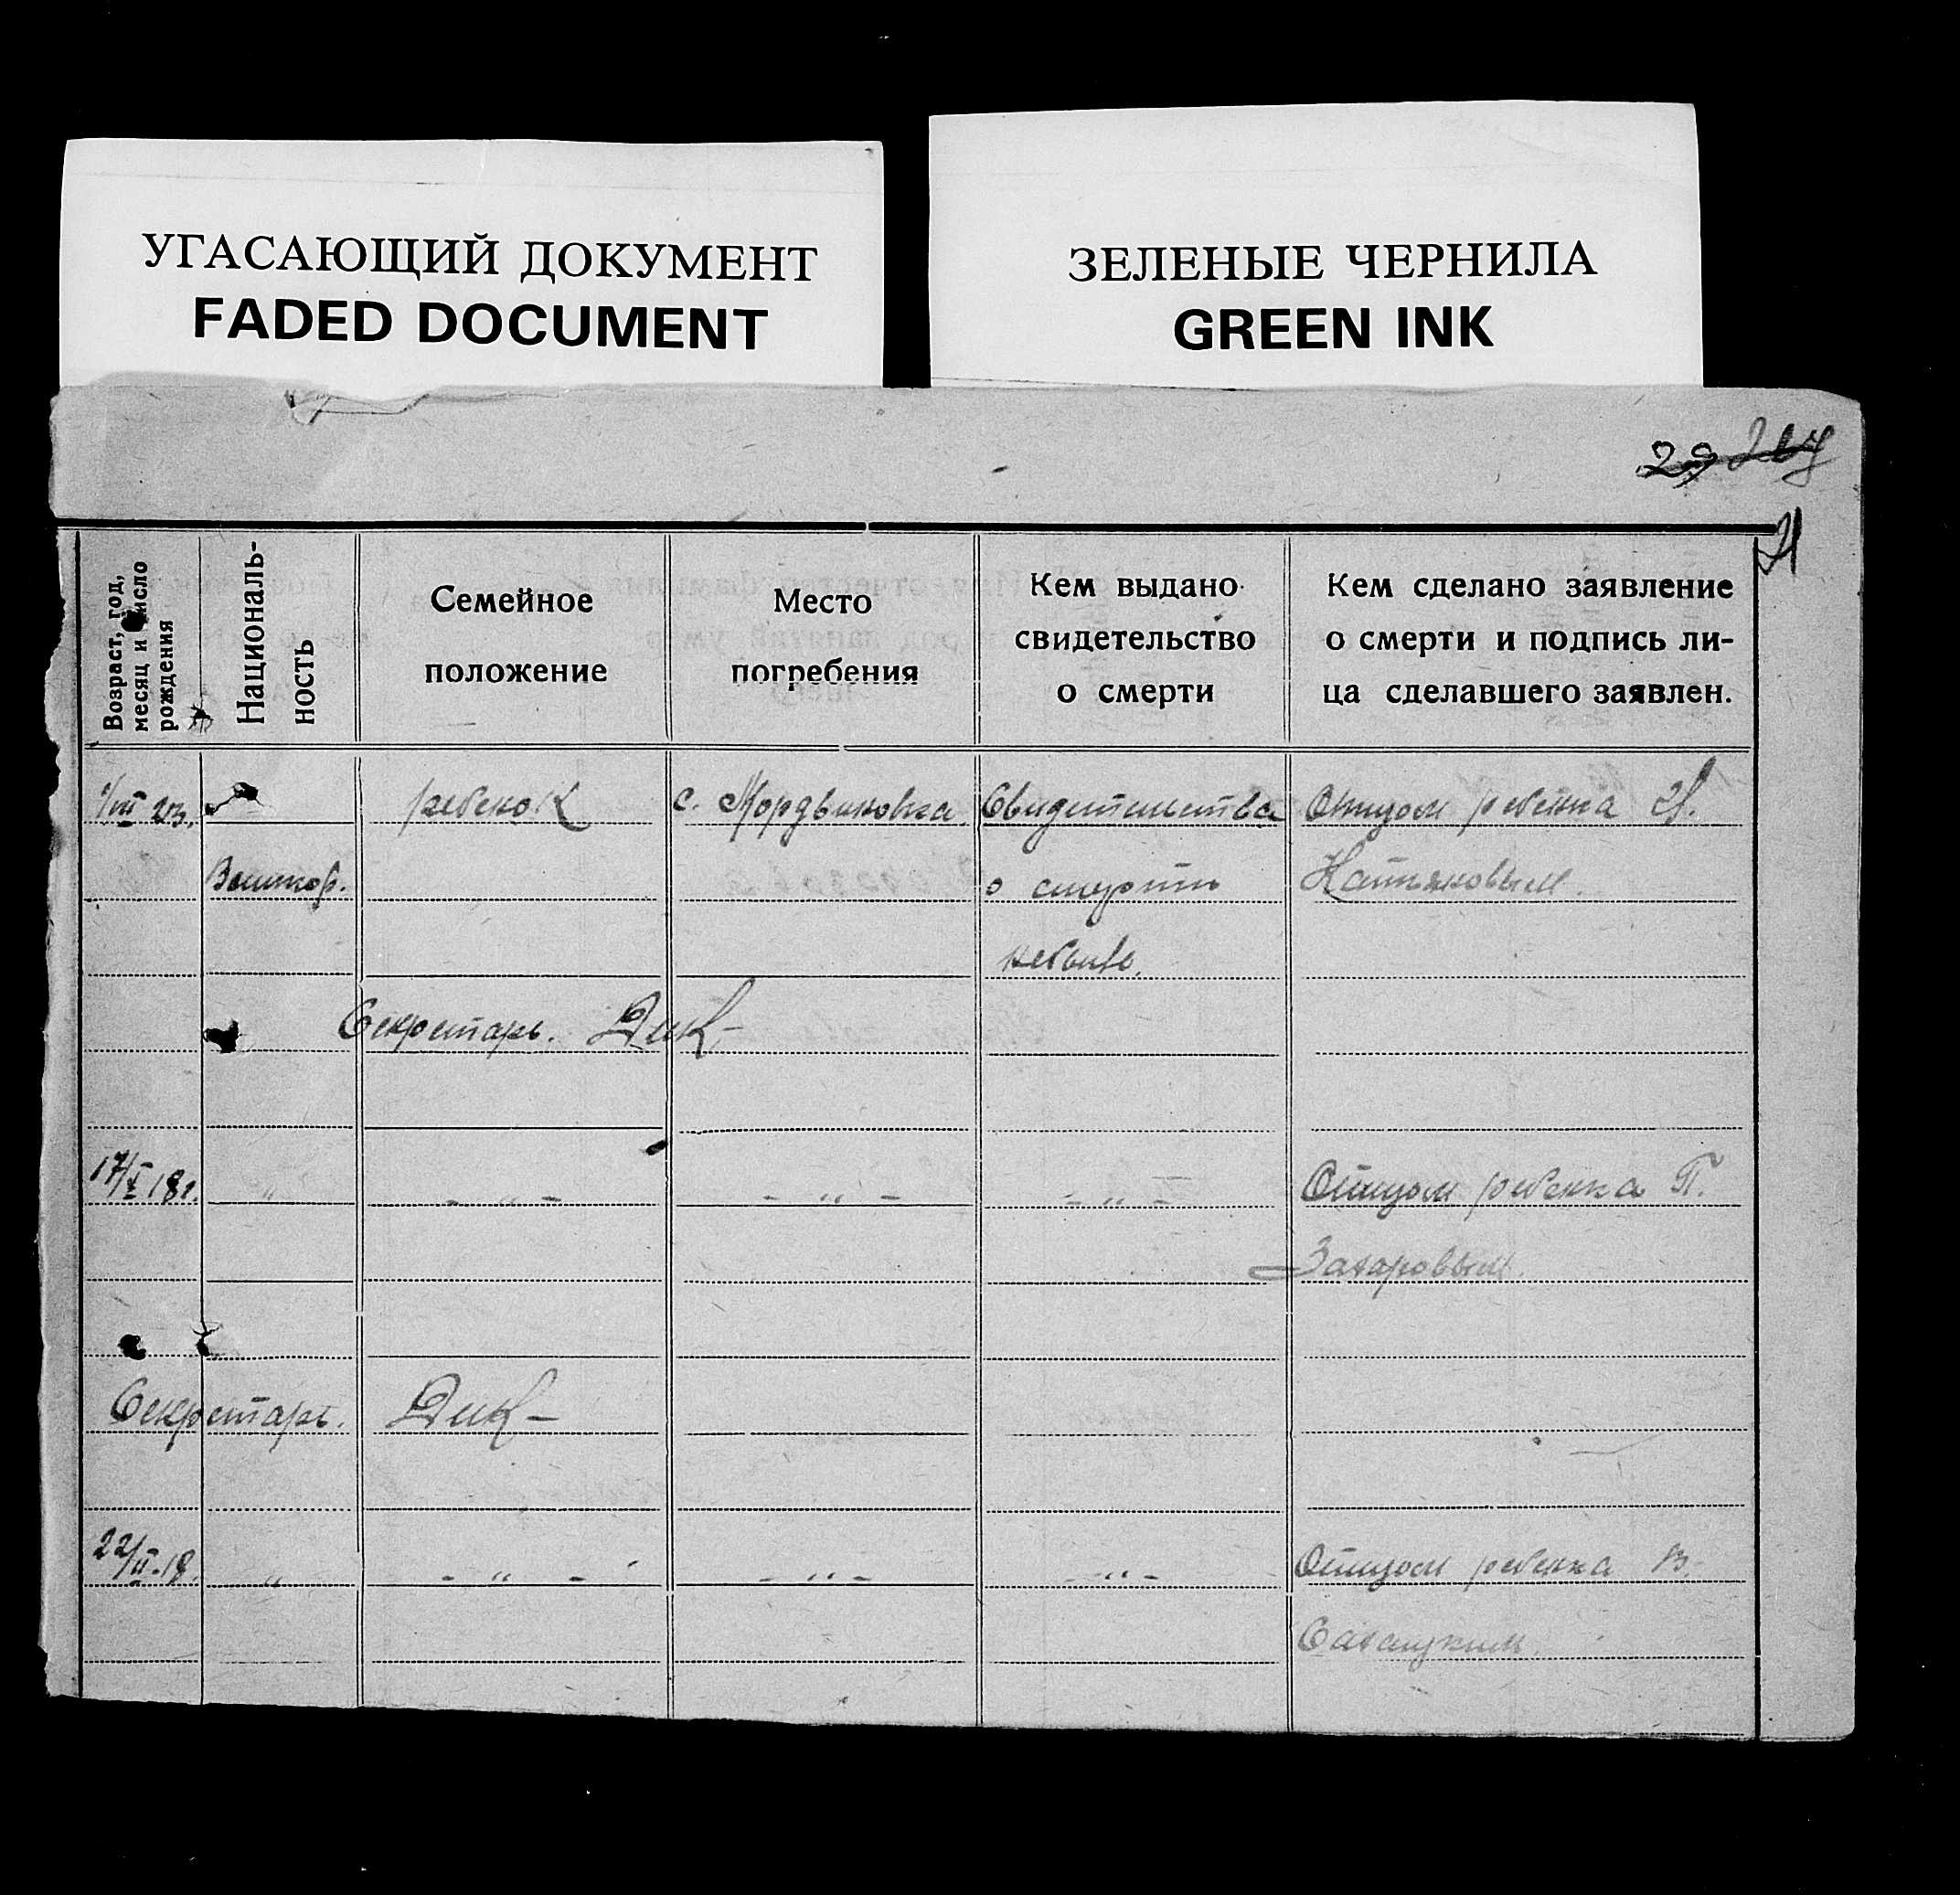 УГАСАЮЩИЙ ДОКУМЕНТ
FADED DOCUMENT
ЗЕЛЕНЫЕ ЧЕРНИЛА
GREEN INK
29
Возраст, год,
месяц и число
рождения
Националь-
ность
Семейное
положение
Место
погребения
Кем выдано
свидетельство
о смерти
Кем сделано заявление
о смерти и подпись ли-
ца сделавшего заявлен.
ребенок
с. Мордвиновка
Свидетельства
Отцом ребенка
Великор.
о смерти
небыло.
Секретарь. Дик
17/X 18г.
"
- " -
- " -
- " -
Отцом ребенка П.
Захаровым.
Секретарь. Дик
22/II-18.
"
- " -
- " -
- " -
Отцом ребенка В.